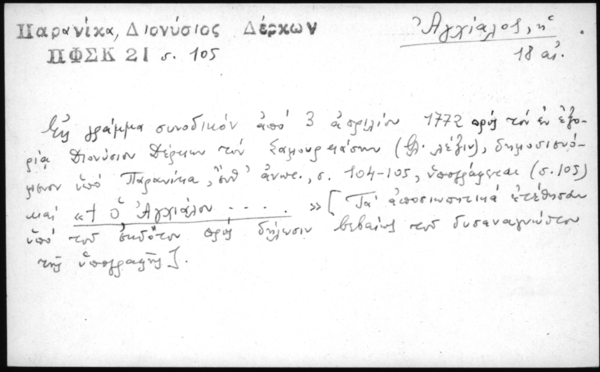 Παρανίκα, Διονύσιος Δέρκων
ΠΦΣΚ 21 σ. 105
Ἀγχίαλος, ἡ
18 αἰ.
Εἰς γράμμα συνοδικόν ἀπό 3 ἀπριλίου 1772 πρός τόν ἐν ἐξο-
ρίᾳ Διονύσιον Δέρκων τόν (βλ. λέξιν), δημοσιευό-
μενον ὑπό Παρανίκα, ἔνθ' ἀνωτ., σ. 104-105, ὑπογράφεται (σ. 105)
καί «† ὁ Ἀγχιάλου . . . . . » [Τά ἀποσιωπητικά ἐτέθησαν
ὑπό τοῦ ἐκδότου πρός δήλωσιν βεβαίως τοῦ δυσαναγνώστου
τῆς ὑπογραφῆς].